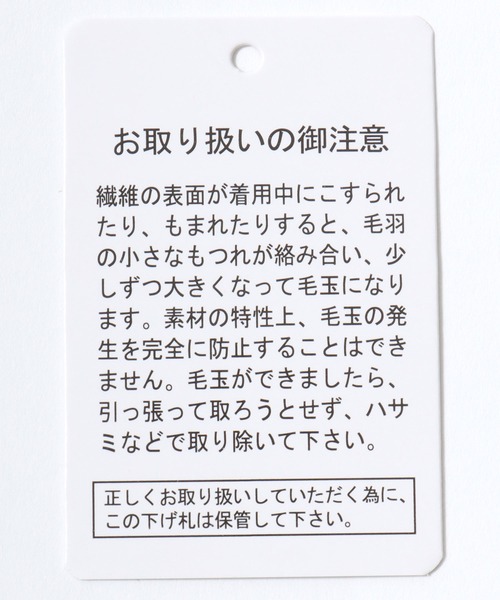 お取り扱いの御注意
繊維の表面が着用中にこすられ
たり、もまれたりすると、毛羽
の小さなもつれが絡み合い、少
しずつ大きくなって毛玉になり
ます。素材の特性上、毛玉の発
生を完全に防止することはでき
ません。毛玉ができましたら、
引っ張って取ろうとせず、ハサ
ミなどで取り除いて下さい。
正しくお取り扱いしていただく為に、
この下げ札は保管して下さい。